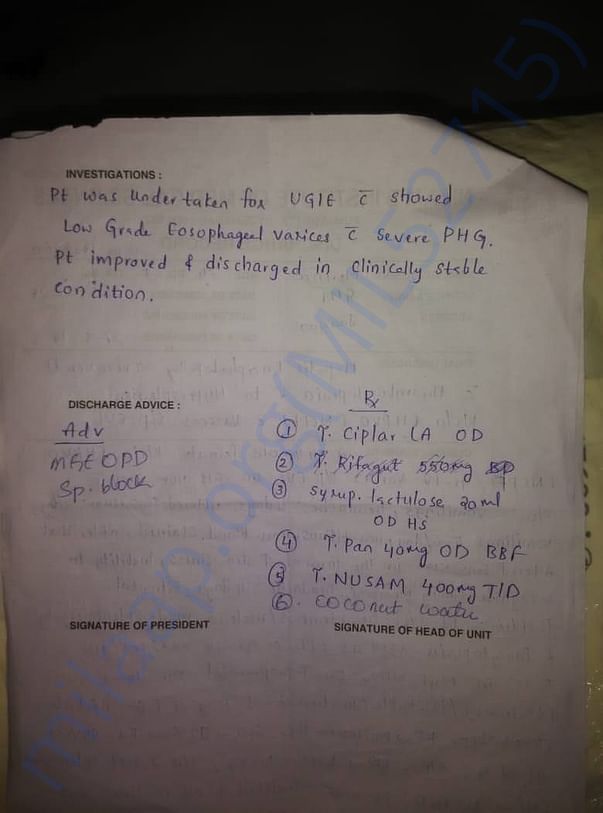 INVESTIGATIONS :
Pt was undertaken for UGIE c̄ showed
Low Grade Eosophageal varices c̄ Severe PHG.
Pt improved & discharged in clinically stable
condition.
DISCHARGE ADVICE :
Adv
OPD
Sp. block
Rx
① T. Ciplar LA OD
② T. Rifagut 550mg BD
③ Syrup. lactulose 20ml
OD HS
④ T. Pan 40mg OD BBF
⑤ T. NUSAM 400mg TID
⑥. coconut water
SIGNATURE OF PRESIDENT
SIGNATURE OF HEAD OF UNIT
milaap.org(MIL52715)